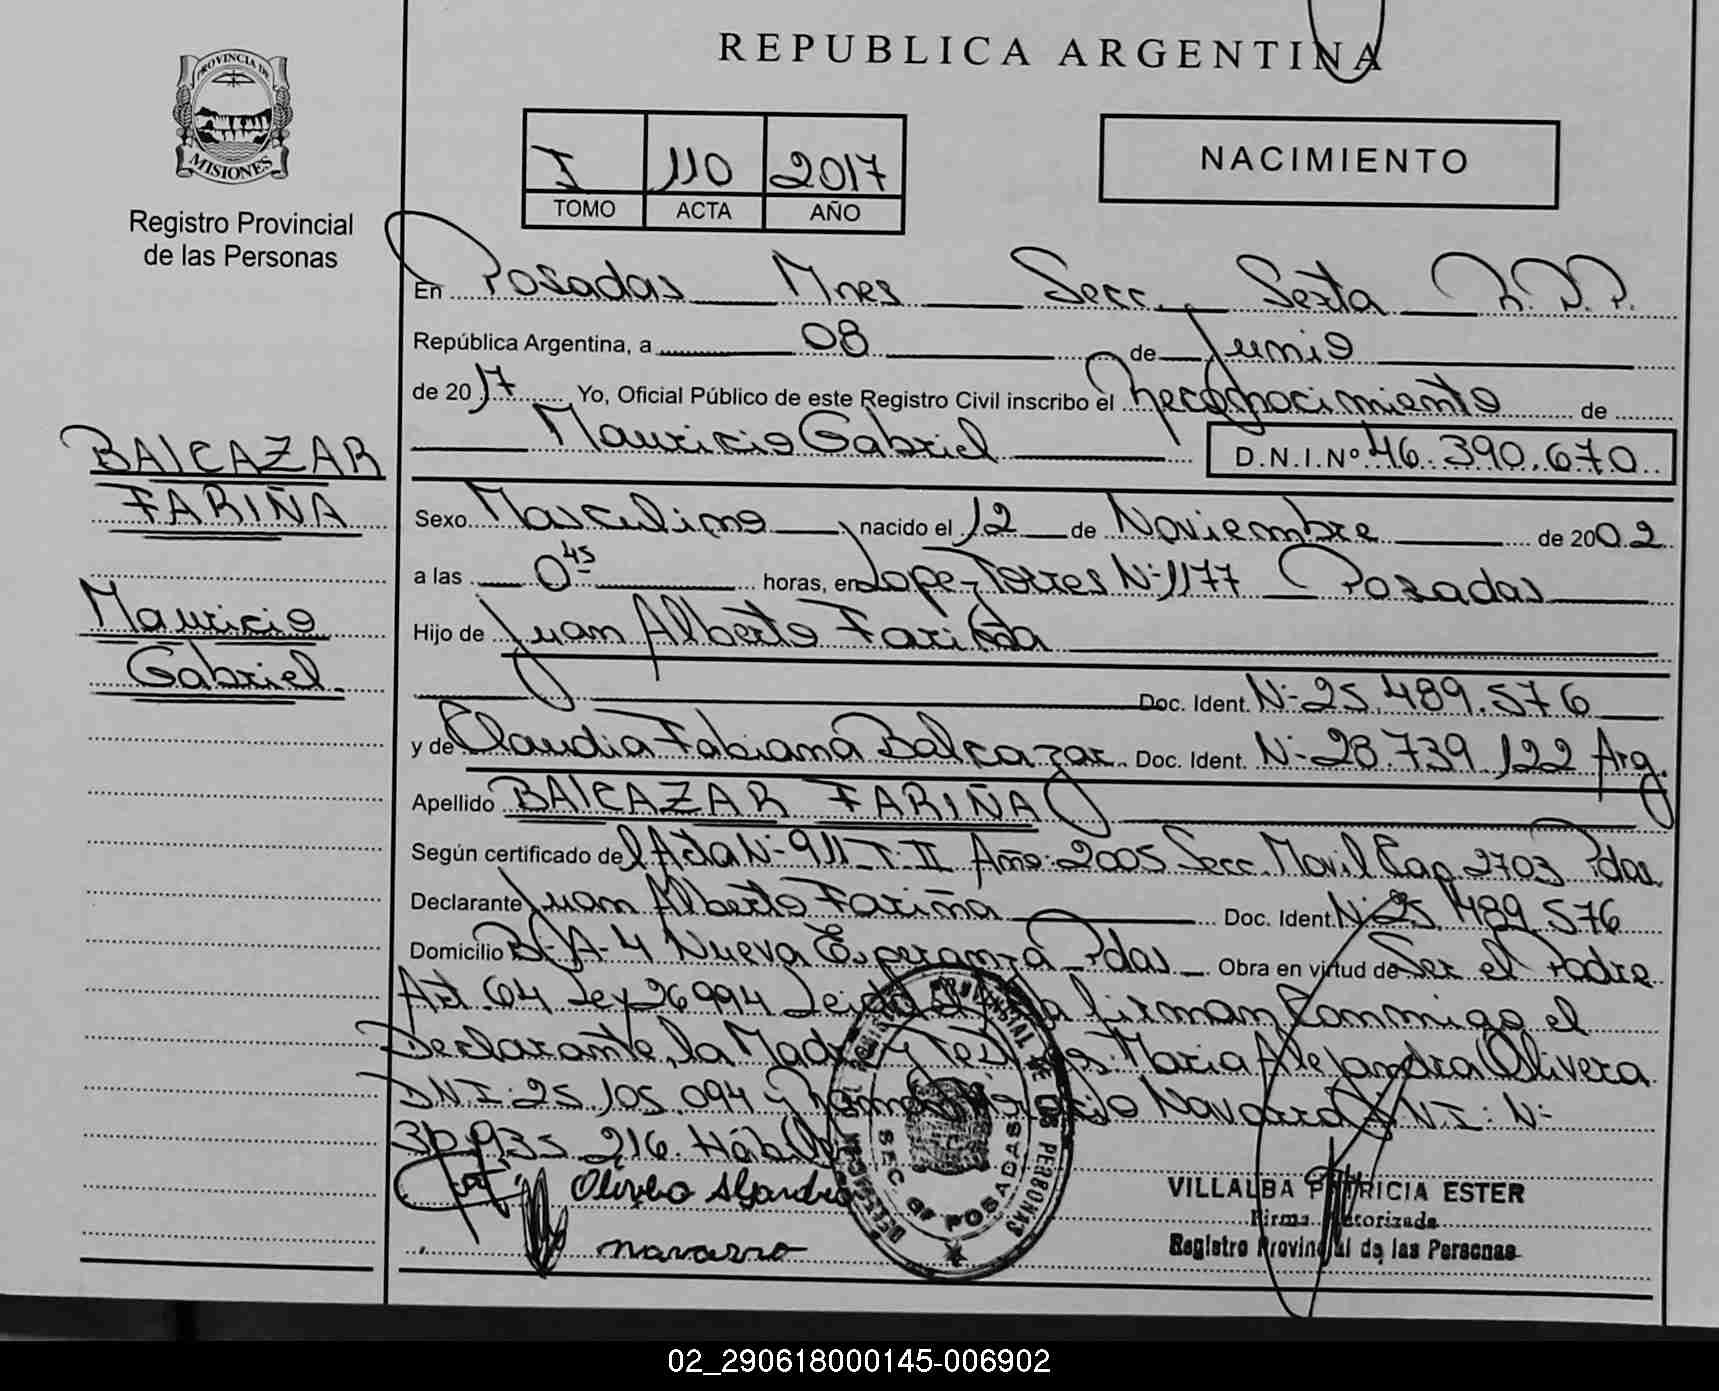 PROVINCIA DE
MISIONES
Registro Provincial
de las Personas
BALCAZAR
FARIÑA
Mauricio
Gabriel
REPUBLICA ARGENTINA
I 110 2017
TOMO ACTA AÑO
NACIMIENTO
En Posadas Mnes Secc. Sexta R.P.P.
República Argentina, a 08 de Junio
de 2017 Yo, Oficial Público de este Registro Civil inscribo el Recognocimiento de
Mauricio Gabriel D.N.I.Nº 46.390.670
Sexo Masculino nacido el 12 de Noviembre de 2002
a las 0 45 horas, en Lopez Torres Nº 1177 Posadas
Hijo de Juan Alberto Fariña
Doc. Ident. Nº 25.489.576
y de Claudia Fabiana Balcazar Doc. Ident. Nº 28.739.122 Arg.
Apellido BALCAZAR FARIÑA
Según certificado del Acta Nº 911 T: II Año: 2005 Secc. Movil Cap 2703 Pdas.
Declarante Juan Alberto Fariña Doc. Ident. Nº 25 489.576
Domicilio Nueva Esperanza Pdas Obra en virtud de Ser el Padre
Art. 64 Ley 26994 Leida firman Conmigo el
Declarante, la Madre y Testigos: Maria Alejandra Olivera
DNI: 25.105.094 y Navarro D.N.I: Nº
935 216. Hábiles
Olivera Alejandra
navarro
REGISTRO PROVINCIAL DE LAS PERSONAS
SEC. 6ª POSADAS
VILLALBA PATRICIA ESTER
Firma Autorizada
Registro Provincial de las Personas
02_290618000145-006902